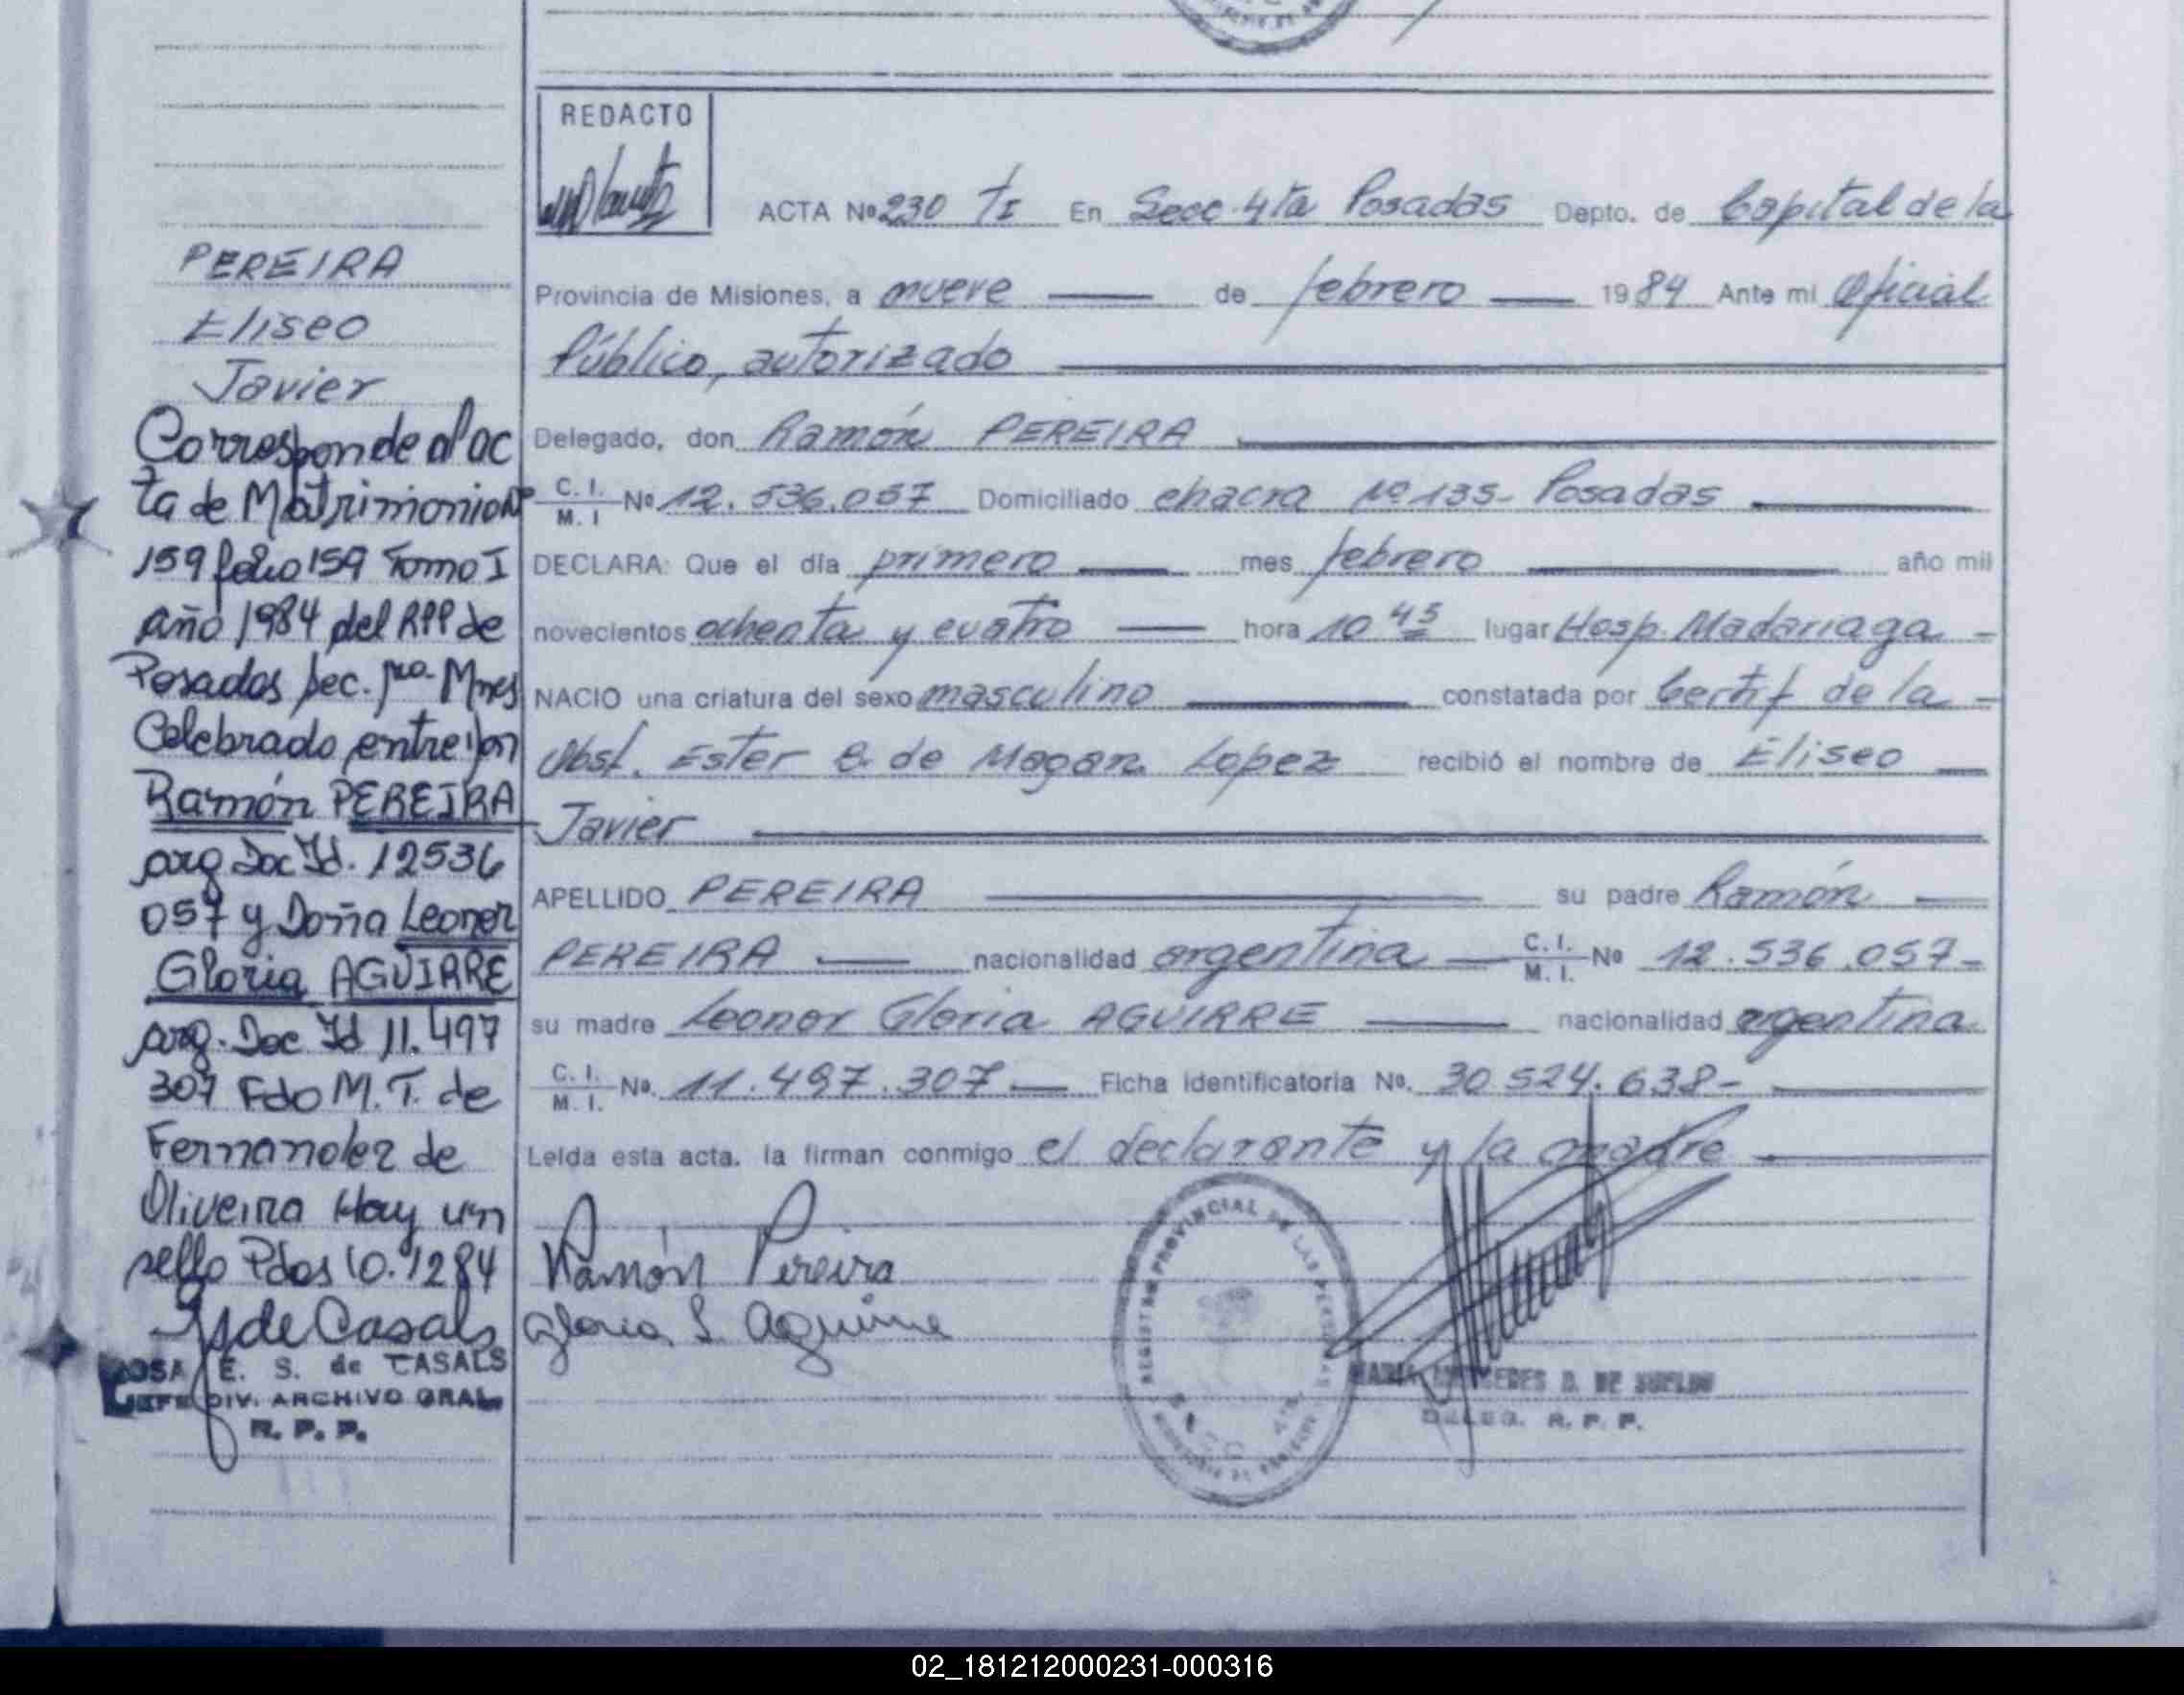 REDACTO
ACTA Nº 230 TI En Secc 4ta Posadas Depto. de Capital de la
Provincia de Misiones, a nueve de febrero 1984 Ante mi Oficial
Público, autorizado
Delegado, don Ramón PEREIRA
C. I. / M. I Nº 12.536.057 Domiciliado chacra Nº 135- Posadas
DECLARA: Que el día primero mes febrero año mil
novecientos ochenta y cuatro hora 10 45 lugar Hosp. Madariaga -
NACIO una criatura del sexo masculino constatada por Certif de la -
Obst. Ester de Lopez recibió el nombre de Eliseo
Javier
APELLIDO PEREIRA su padre Ramón
PEREIRA nacionalidad argentina C. I. / M. I. Nº 12.536.057-
su madre Leonor Gloria AGUIRRE nacionalidad argentina
C. I. / M. I. Nº. 11.497.307 Ficha identificatoria Nº. 30.524.638-
Leída esta acta. la firman conmigo el declarante y la madre
Ramón Pereira
Gloria L Aguirre
REGISTRO PROVINCIAL DE LAS PERSONAS
DELEG. R. P. P.
PEREIRA
Eliseo
Javier
Corresponde al ac
ta de Matrimonio Nº
159 folio 159 Tomo I
año 1984 del RPP de
Posadas sec. 1ra. Mnes
Celebrado entre Don
Ramón PEREIRA
arg Doc Id. 12536
057 y Doña Leonor
Gloria AGUIRRE
arg. Doc Id 11.497
307 Fdo M. T. de
Fernandez de
Oliveira Hay un
sello Pdas 10.1284
de Casals
ROSA E. S. de CASALS
JEFE DIV. ARCHIVO GRAL.
R. P. P.
02_181212000231-000316